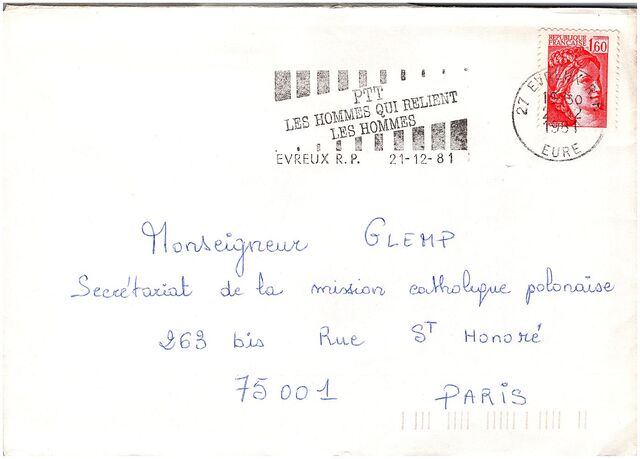 REPUBLIQUE
FRANCAISE
1,60
PTT
LES HOMMES QUI RELIENT
LES HOMMES
EVREUX R.P. 21-12-81
27 EVREUX R.P.
1981
EURE
Monseigneur GLEMP
Secrétariat de la mission catholique polonaise
263 bis Rue ST Honoré
75001 PARIS